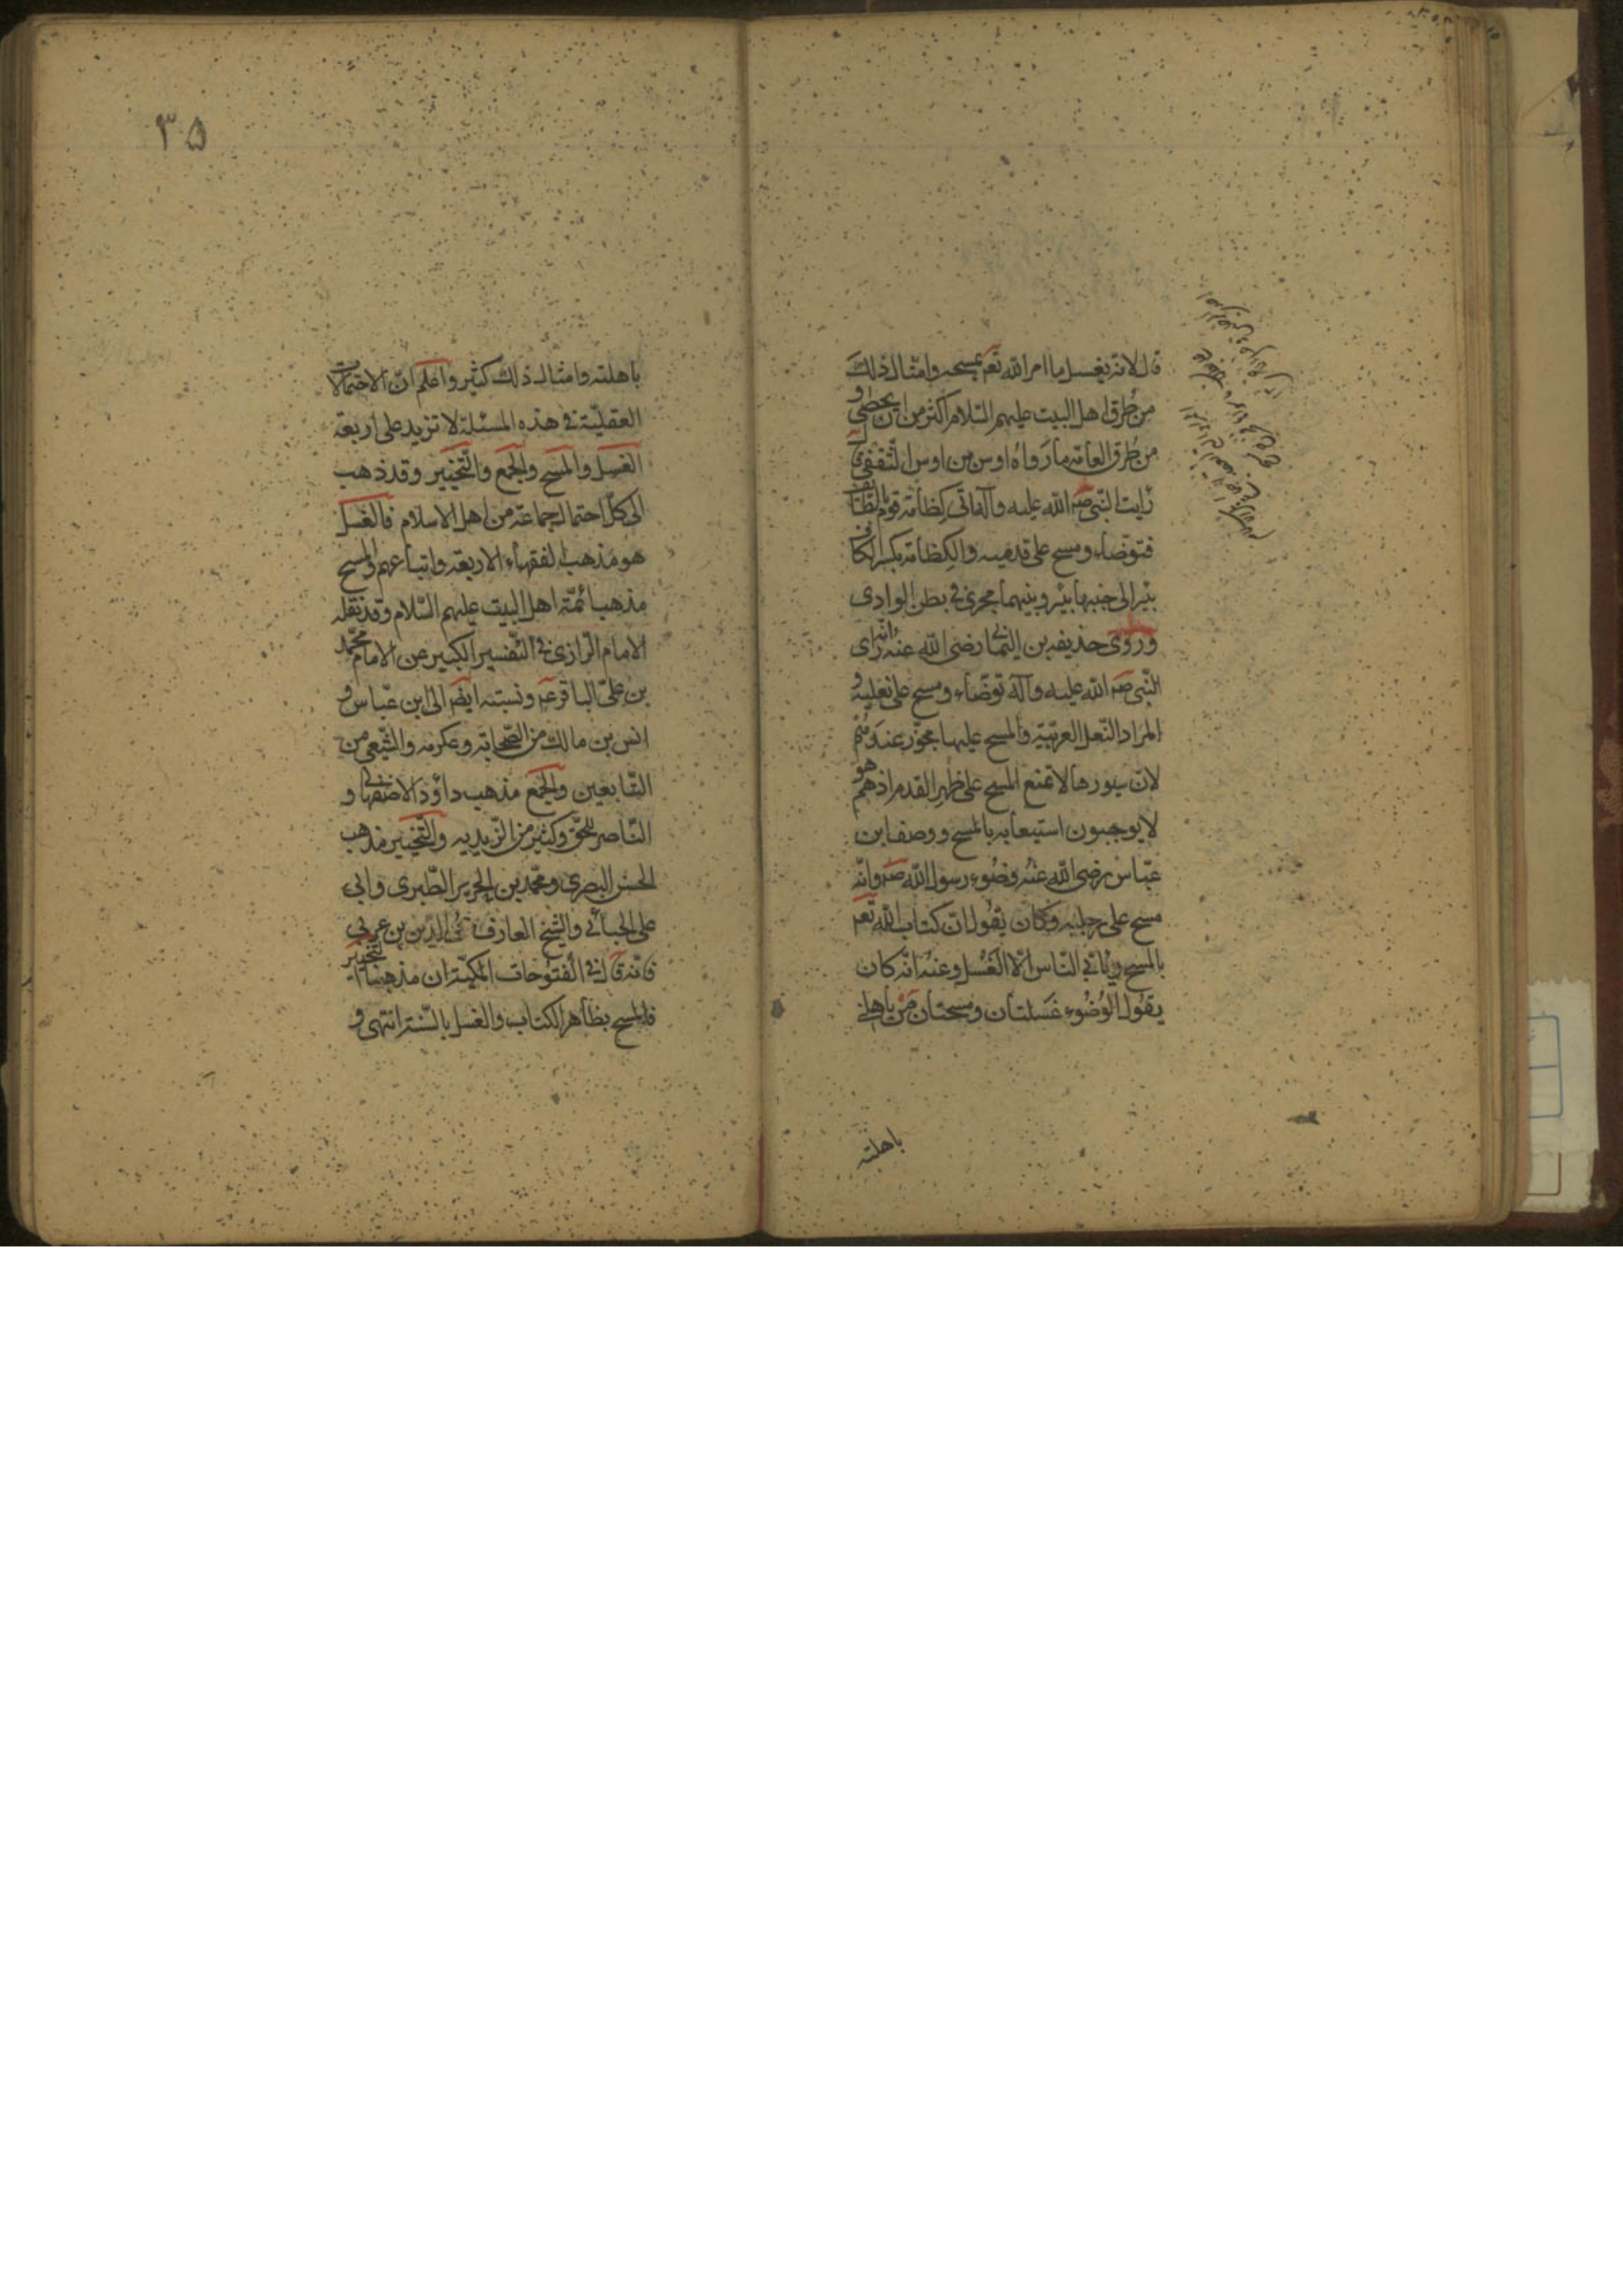 قال لانه يغسل ما امر الله تعم بمسحه وامثال ذلك
من طرق اهل البيت عليهم السّلام اكثر من ان يحصى و
من طرق العامّه ما رواه اوس بن اوس الثّقفى ق
رايت النّبى صه الله عليه وآله اتى كظامة قوم بالطّائف
فتوضّاء ومسح على قدميه والكظامة بكسر الكاف
بئر الى جنبها بئر وبينهما مجرى فى بطن الوادى
وروى حذيفه بن اليمان رضى الله عنه انّه راى
النّبى صه الله عليه وآله توضّاء ومسح على نعليه و
المراد النّعل العربيّة والمسح عليها مجوّز عندهم
لانّ سيورها لا تمنع المسح على ظهر القدم اذ هم
لا يوجبون استيعابه بالمسح ووصف ابن
عبّاس رضى الله عنه وضوء رسول الله صه وانّه
مسح على رجليه وكان يقول انّ كتاب الله تعم
بالمسح ويابى النّاس الّا الغسل وعنه انّه كان
يقول الوضوء غسلتان ومسحتان من باهلنى
باهلته
٣٥
باهلته وامثال ذلك كثير واعلم انّ الاحتمالات
العقليّة فى هذه المسئلة لا تزيد على اربعة
الغسل والمسح والجمع والتّخيير وقد ذهب
الى كلّ احتمال جماعة من اهل الاسلام فالغسل
هو مذهب الفقهاء الاربعه واتباعهم والمسح
مذهب ائمّة اهل البيت عليهم السّلام وقد نقله
الامام الرّازى فى التّفسير الكبير عن الامام محمّد
بن علىّ الباقر عم ونسبته ايضم الى ابن عبّاس و
انس بن مالك من الصّحابة وعكرمه والشّعبى من
التّابعين والجمع مذهب داؤد الاصفهانى و
النّاصر للحقّ وكثير من الزّيديه والتّخيير مذهب
الحسن البصرى ومحمّد بن الجرير الطّبرى وابى
على الجبائى والشّيخ العارف محى الدّين بن عربى
فانّه قال فى الفتوحات المكيّة ان مذهبنا التّخيير
فالمسح بظاهر الكتاب والغسل بالسّنة انتهى و